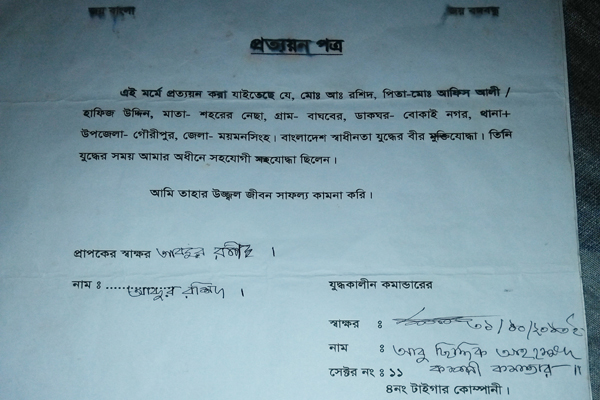 জয় বাংলা
প্রত্যয়ন পত্র
এই মর্মে প্রত্যয়ন করা যাইতেছে যে, মোঃ আঃ রশিদ, পিতা-মোঃ আফিল আলী /
হাফিজ উদ্দিন, মাতা- শহরের নেছা, গ্রাম- বাঘবের, ডাকঘর- বোকাই নগর, থানা+
উপজেলা- গৌরীপুর, জেলা- ময়মনসিংহ। বাংলাদেশ স্বাধীনতা যুদ্ধের বীর মুক্তিযোদ্ধা। তিনি
যুদ্ধের সময় আমার অধীনে সহযোগী সহযোদ্ধা ছিলেন।
আমি তাহার উজ্জ্বল জীবন সাফল্য কামনা করি।
প্রাপকের স্বাক্ষর আবদুর রশীদ ।
নাম ঃ ...... আব্দুর রশিদ ।
যুদ্ধকালীন কমান্ডারের
স্বাক্ষর ঃ
নাম ঃ আবু ছিদ্দিক আহমেদ
সেক্টর নং ঃ ১১ কোম্পানী কমান্ডার ॥
৪নং টাইগার কোম্পানী।